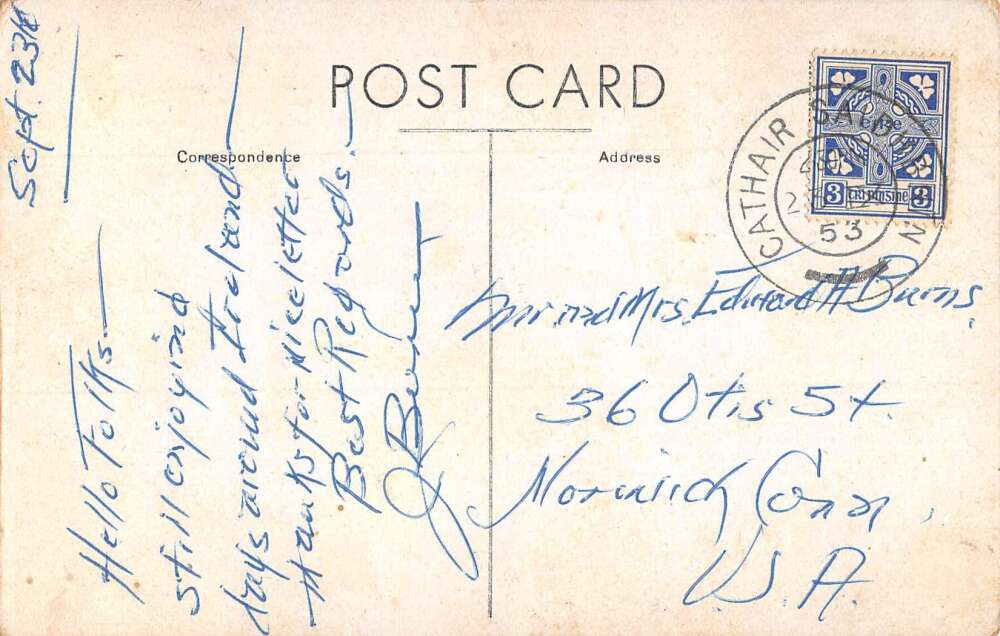 POST CARD
Correspondence
Address
Sept. 23rd
Hello Folks
still enjoying
days around Ireland
thanks for nice letter
Best Regards.
J
Mr and Mrs. Edward H Burns,
36 Otis St.
Norwich Conn.
U.S.A.
CATHAIR SAIDHBHIN
53
eire
3 trí pinsine 3